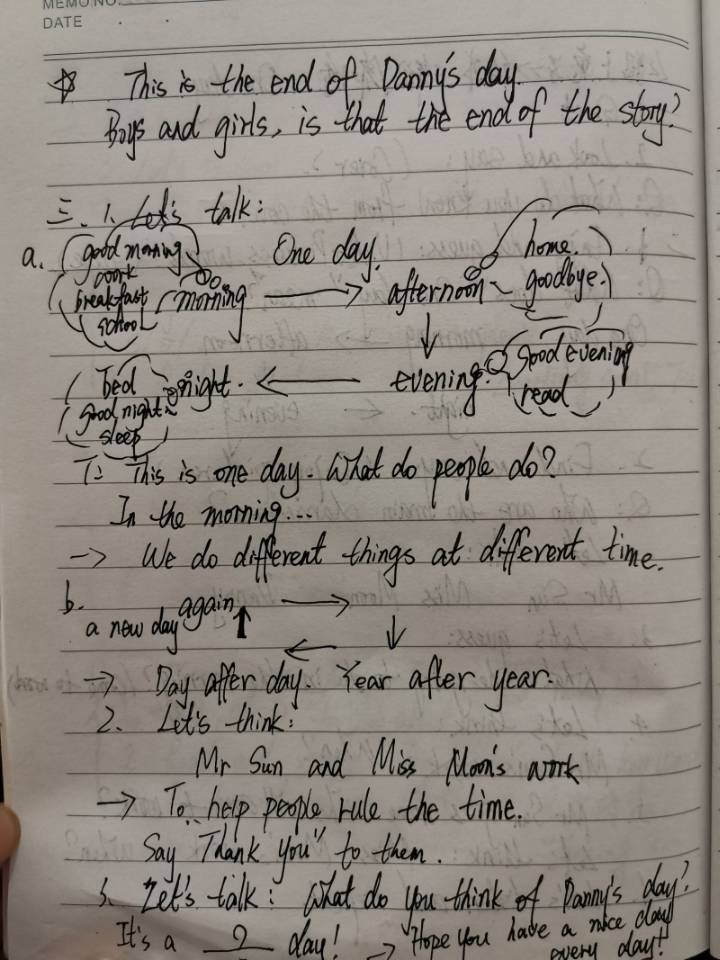 MEMO NO.
DATE
☆ This is the end of Danny's day.
Boys and girls, is that the end of the story?
三. 1. Let's talk:
a. good morning One day. home.
work
breakfast morning → afternoon goodbye.
school
bed night. ← evening. good evening
good night read
sleep
T: This is one day. What do people do?
In the morning...
→ We do different things at different time.
b. again →
a new day ↑ ↓
←
→ Day after day. Year after year.
2. Let's think:
Mr Sun and Miss Moon's work
→ To help people rule the time.
Say "Thank you" to them.
3. Let's talk: What do you think of Danny's day?
It's a ? day! → Hope you have a nice day
every day!